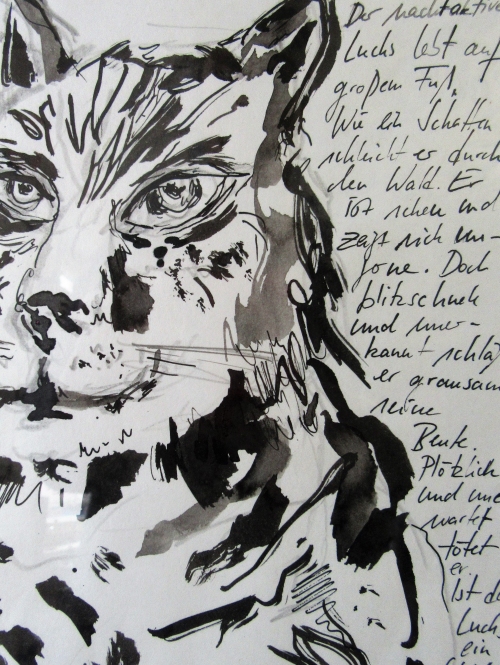 Der nachtaktive
Luchs lebt auf
großem Fuß.
Wie ein Schatten
schleicht er durch
den Wald. Er
ist scheu und
zeigt sich un-
gerne. Doch
blitzschnell
und uner-
kannt schlä
er grausam
seine
Beute.
Plötzlich
und une
markt
tötet
er
Ist d
Luch
ein